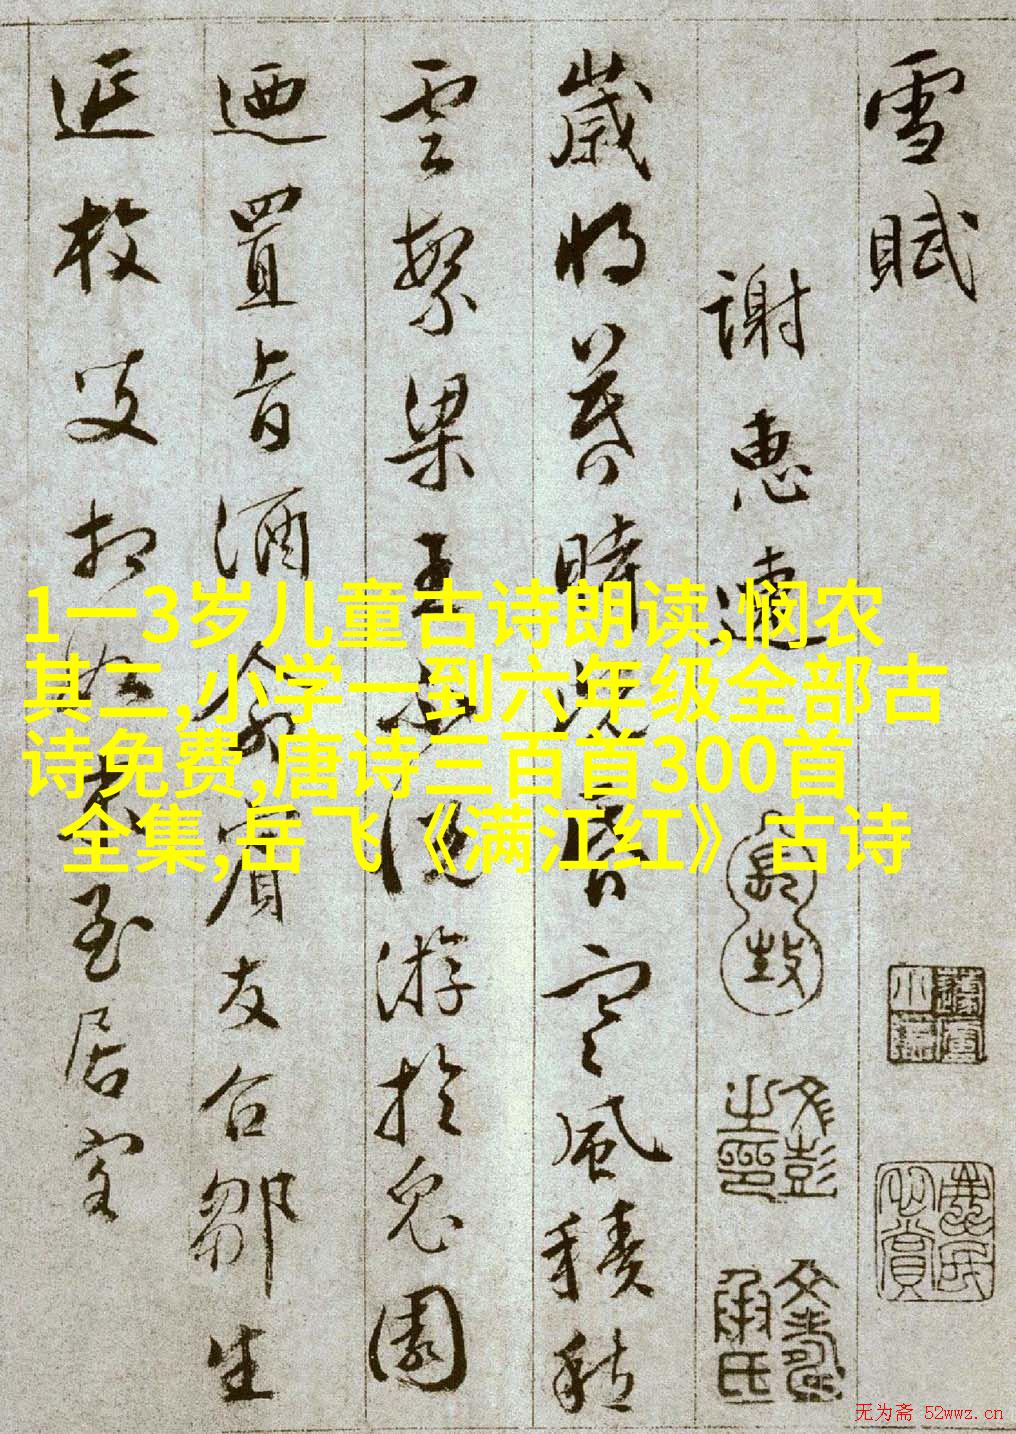 雪賦
謝惠連
歲將暮時既昏寒風積
雲繁梁王不悅游於兔園
迺置旨酒命賓友召鄒生
延枚叟相如末至居客
1一3岁儿童古诗朗读,悯农
其二,小学一到六年级全部古
诗免费,唐诗三百首300首
全集,岳飞《满江红》古诗
文彭之印
文壽承氏
无为斋 52wwz.cn